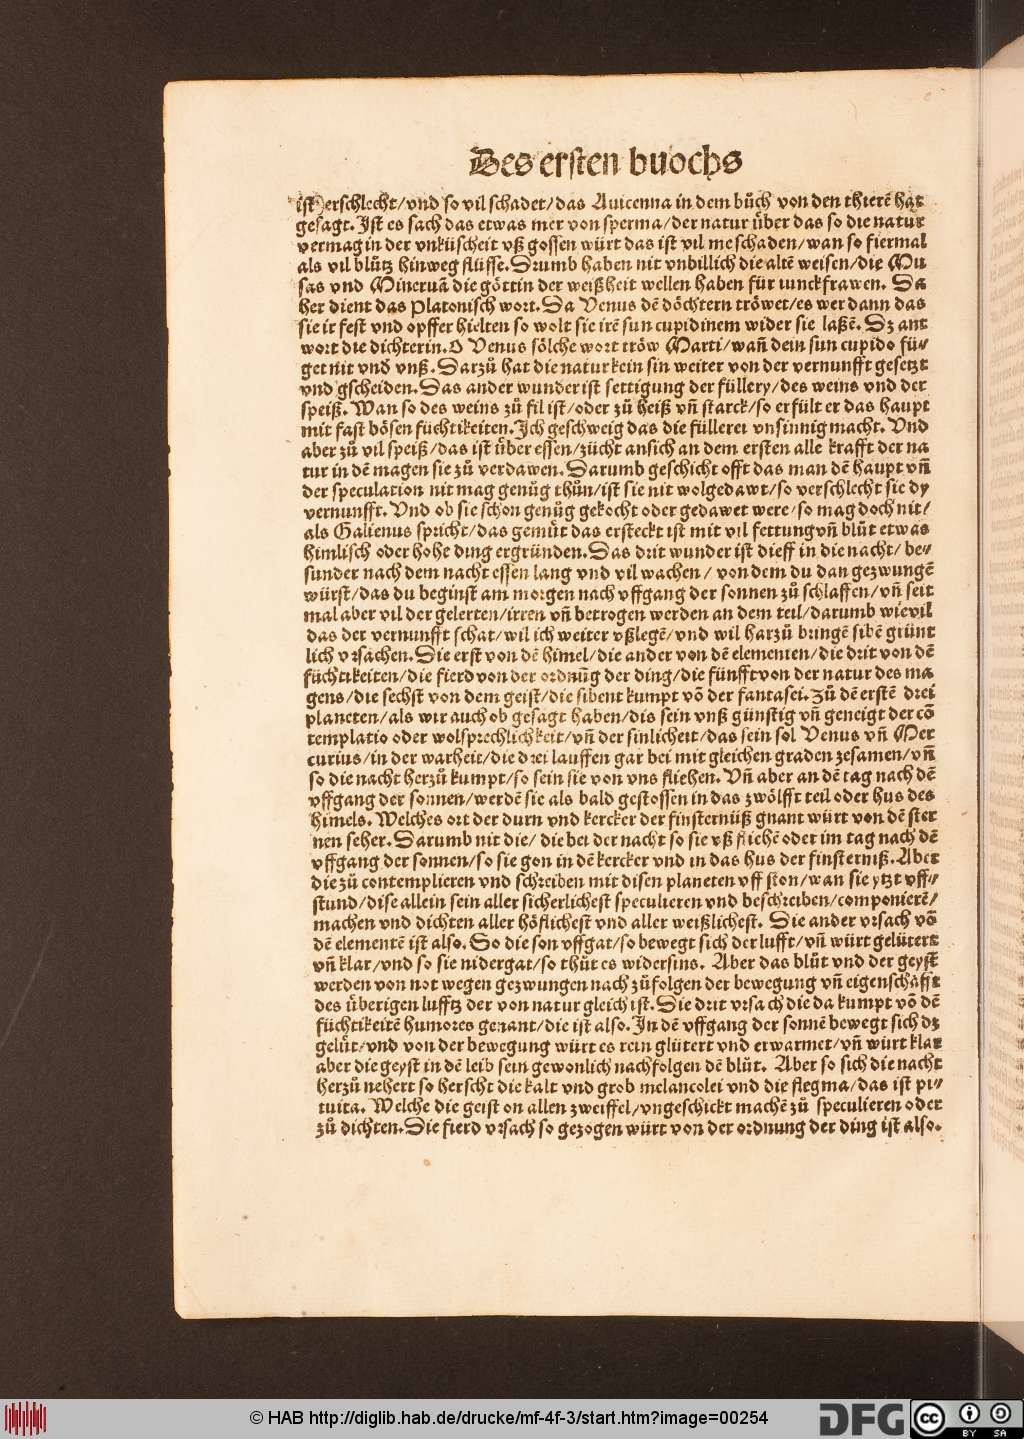 Des ersten buochs
ist erschlecht/vnd so vil schadet/das Auicenna in dem bůch von den thierē hat
gesagt. Jst es sach das etwas mer von sperma/der natur über das so die natur
vermag in der vnküscheit vß gossen würt das ist vil me schaden/wan so fiermal
als vil blůtz hinweg flüsse. Drumb haben nit vnbillich die altē weisen/die Mu
sas vnd Mineruā die göttin der weißheit wellen haben für iunckfrawen. Da
her dient das Platonisch wort. Da Venus dē döchtern tröwet/es wer dann das
sie ir fest vnd opffer hielten so wolt sie irē sun cupidinem wider sie laßē. Dz ant
wort die dichterin. O Venus sölche wort tröw Marti/wañ dein sun cupido fü⸗
get nit vnd vnß. Darzů hat die natur kein sin weiter von der vernunfft gesetzt
vnd gscheiden. Das ander wunder ist settigung der füllery/des weins vnd der
speiß. Wan so des weins zů fil ist/oder zů heiß vñ starck/so erfült er das haupt
mit fast bösen füchtikeiten. Jch geschweig das die füllerei vnsinnig macht. Vnd
aber zů vil speiß/das ist über essen/zücht an sich an dem ersten alle krafft der na
tur in dē magen sie zů verdawen. Darumb geschicht offt das man dē haupt vñ
der speculation nit mag genůg thůn/ist sie nit wolgedawt/so verschlecht sie dy
vernunfft. Vnd ob sie schon genůg gekocht oder gedawet were/so mag doch nit/
als Galienus spricht/das gemůt das ersteckt ist mit vil fettung vñ blůt etwas
himlisch oder hohe ding ergründen. Das drit wunder ist dieff in die nacht/be⸗
sunder nach dem nacht essen lang vnd vil wachen/ von dem du dan gezwungē
würst/das du beginst am morgen nach vffgang der sonnen zů schlaffen/vñ seit
mal aber vil der gelerten/irren vñ betrogen werden an dem teil/darumb wie vil
das der vernunfft schat/wil ich weiter vßlegē/vnd wil harzů bringē sibē grünt
lich vrsachen. Die erst von dē himel/die ander von dē elementen/die drit von dē
füchtikeiten/die fierd von der ordnūg der ding/die fünfft von der natur des ma
gens/die sechst von dem geist/die sibent kumpt vō der fantasei. Zů dē erstē drei
planeten/als wir auch ob gesagt haben/die sein vnß günstig vñ geneigt der cō
templatio oder wolsprechlichkeit/vñ der sinlicheit/das sein sol Venus vñ Mer
curius/in der warheit/die drei lauffen gar bei mit gleichen graden zesamen/vñ
so die nacht herzů kumpt/so sein sie von vns fliehen. Vñ aber an dē tag nach dē
vffgang der sonnen/werdē sie als bald gestossen in das zwölfft teil oder hus des
himels. Welches ort der durn vnd kercker der finsternüß gnant würt von dē ster
nen seher. Darumb nit die/ die bei der nacht so sie vß fliehē oder im tag nach dē
vffgang der sonnen/so sie gon in dē kercker vnd in das hus der finsterniß. Aber
die zů contemplieren vnd schreiben mit disen planeten vff ston/wan sie ytzt vff⸗
stund/dise allein sein aller sicherlichest speculieren vnd beschreiben/componierē/
machen vnd dichten aller höflichest vnd aller weißlichest. Die ander vrsach vō
dē elementē ist also. So die son vffgat/so bewegt sich der lufft/vñ würt gelütert
vñ klar/vnd so sie nidergat/so thůt es widersins. Aber das blůt vnd der geyst
werden von not wegen gezwungen nach zů folgen der bewegung vñ eigenschafft
des überigen lufftz der von natur gleich ist. Die drit vrsach die da kumpt vō dē
füchtikeitē humores genant/die ist also. Jn dē vffgang der sonnē bewegt sich dz
gelüt/vnd von der bewegung würt es rein glütert vnd erwarmet/vñ würt klar
aber die geyst in dē leib sein gewonlich nachfolgen dē blůt. Aber so sich die nacht
herzů nehert so herscht die kalt vnd grob melancolei vnd die flegma/das ist pi⸗
tuita. Welche die geist on allen zweiffel/vngeschickt machē zů speculieren oder
zů dichten. Die fierd vrsach so gezogen würt von der ordnung der ding ist also.
© HAB http://diglib.hab.de/drucke/mf-4f-3/start.htm?image=00254
DFG
cc BY SA